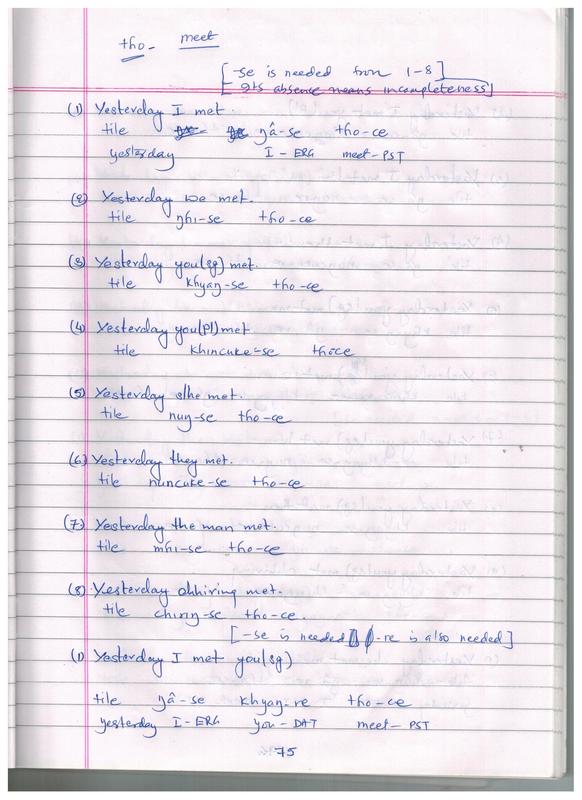 tho- meet
[-se is needed from 1-8]
Its absence means incompleteness]
(1) Yesterday I met.
tile ŋâ-se tho-ce
yesterday I-ERG meet-PST
(2) Yesterday we met.
tile ŋhi-se tho-ce
(3) Yesterday you(sg) met.
tile khyaŋ-se tho-ce
(4) Yesterday you(pl) met
tile khincuke-se thoce
(5) Yesterday s/he met.
tile nuŋ-se tho-ce
(6) Yesterday they met.
tile nuncuke-se tho-ce
(7) Yesterday the man met.
tile mhi-se tho-ce
(8) Yesterday chhiring met.
tile chiriŋ-se tho-ce.
[-se is needed -re is also needed]
(1) Yesterday I met you(sg)
tile ŋâ-se khyaŋ-re tho-ce
yesterday I-ERG you-DAT meet-PST
75